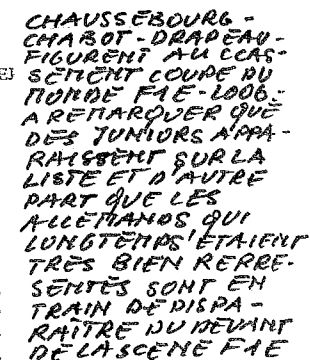 CHAUSSEBOURG -
CHABOT - DRAPEAU -
FIGURENT AU CCAS-
SEMENT COUPE DU
MONDE F1E - 2006 -
A REMARQUER QUE
DES JUNIORS APPA-
RAISSENT SUR LA
LISTE ET D'AUTRE
PART QUE LES
ALLEMANDS QUI
LONGTEMPS ETAIENT
TRES BIEN REPRE-
SENTES SONT EN
TRAIN DE DISPA-
RAÎTRE DU DEVANT
DE LA SCENE F1E